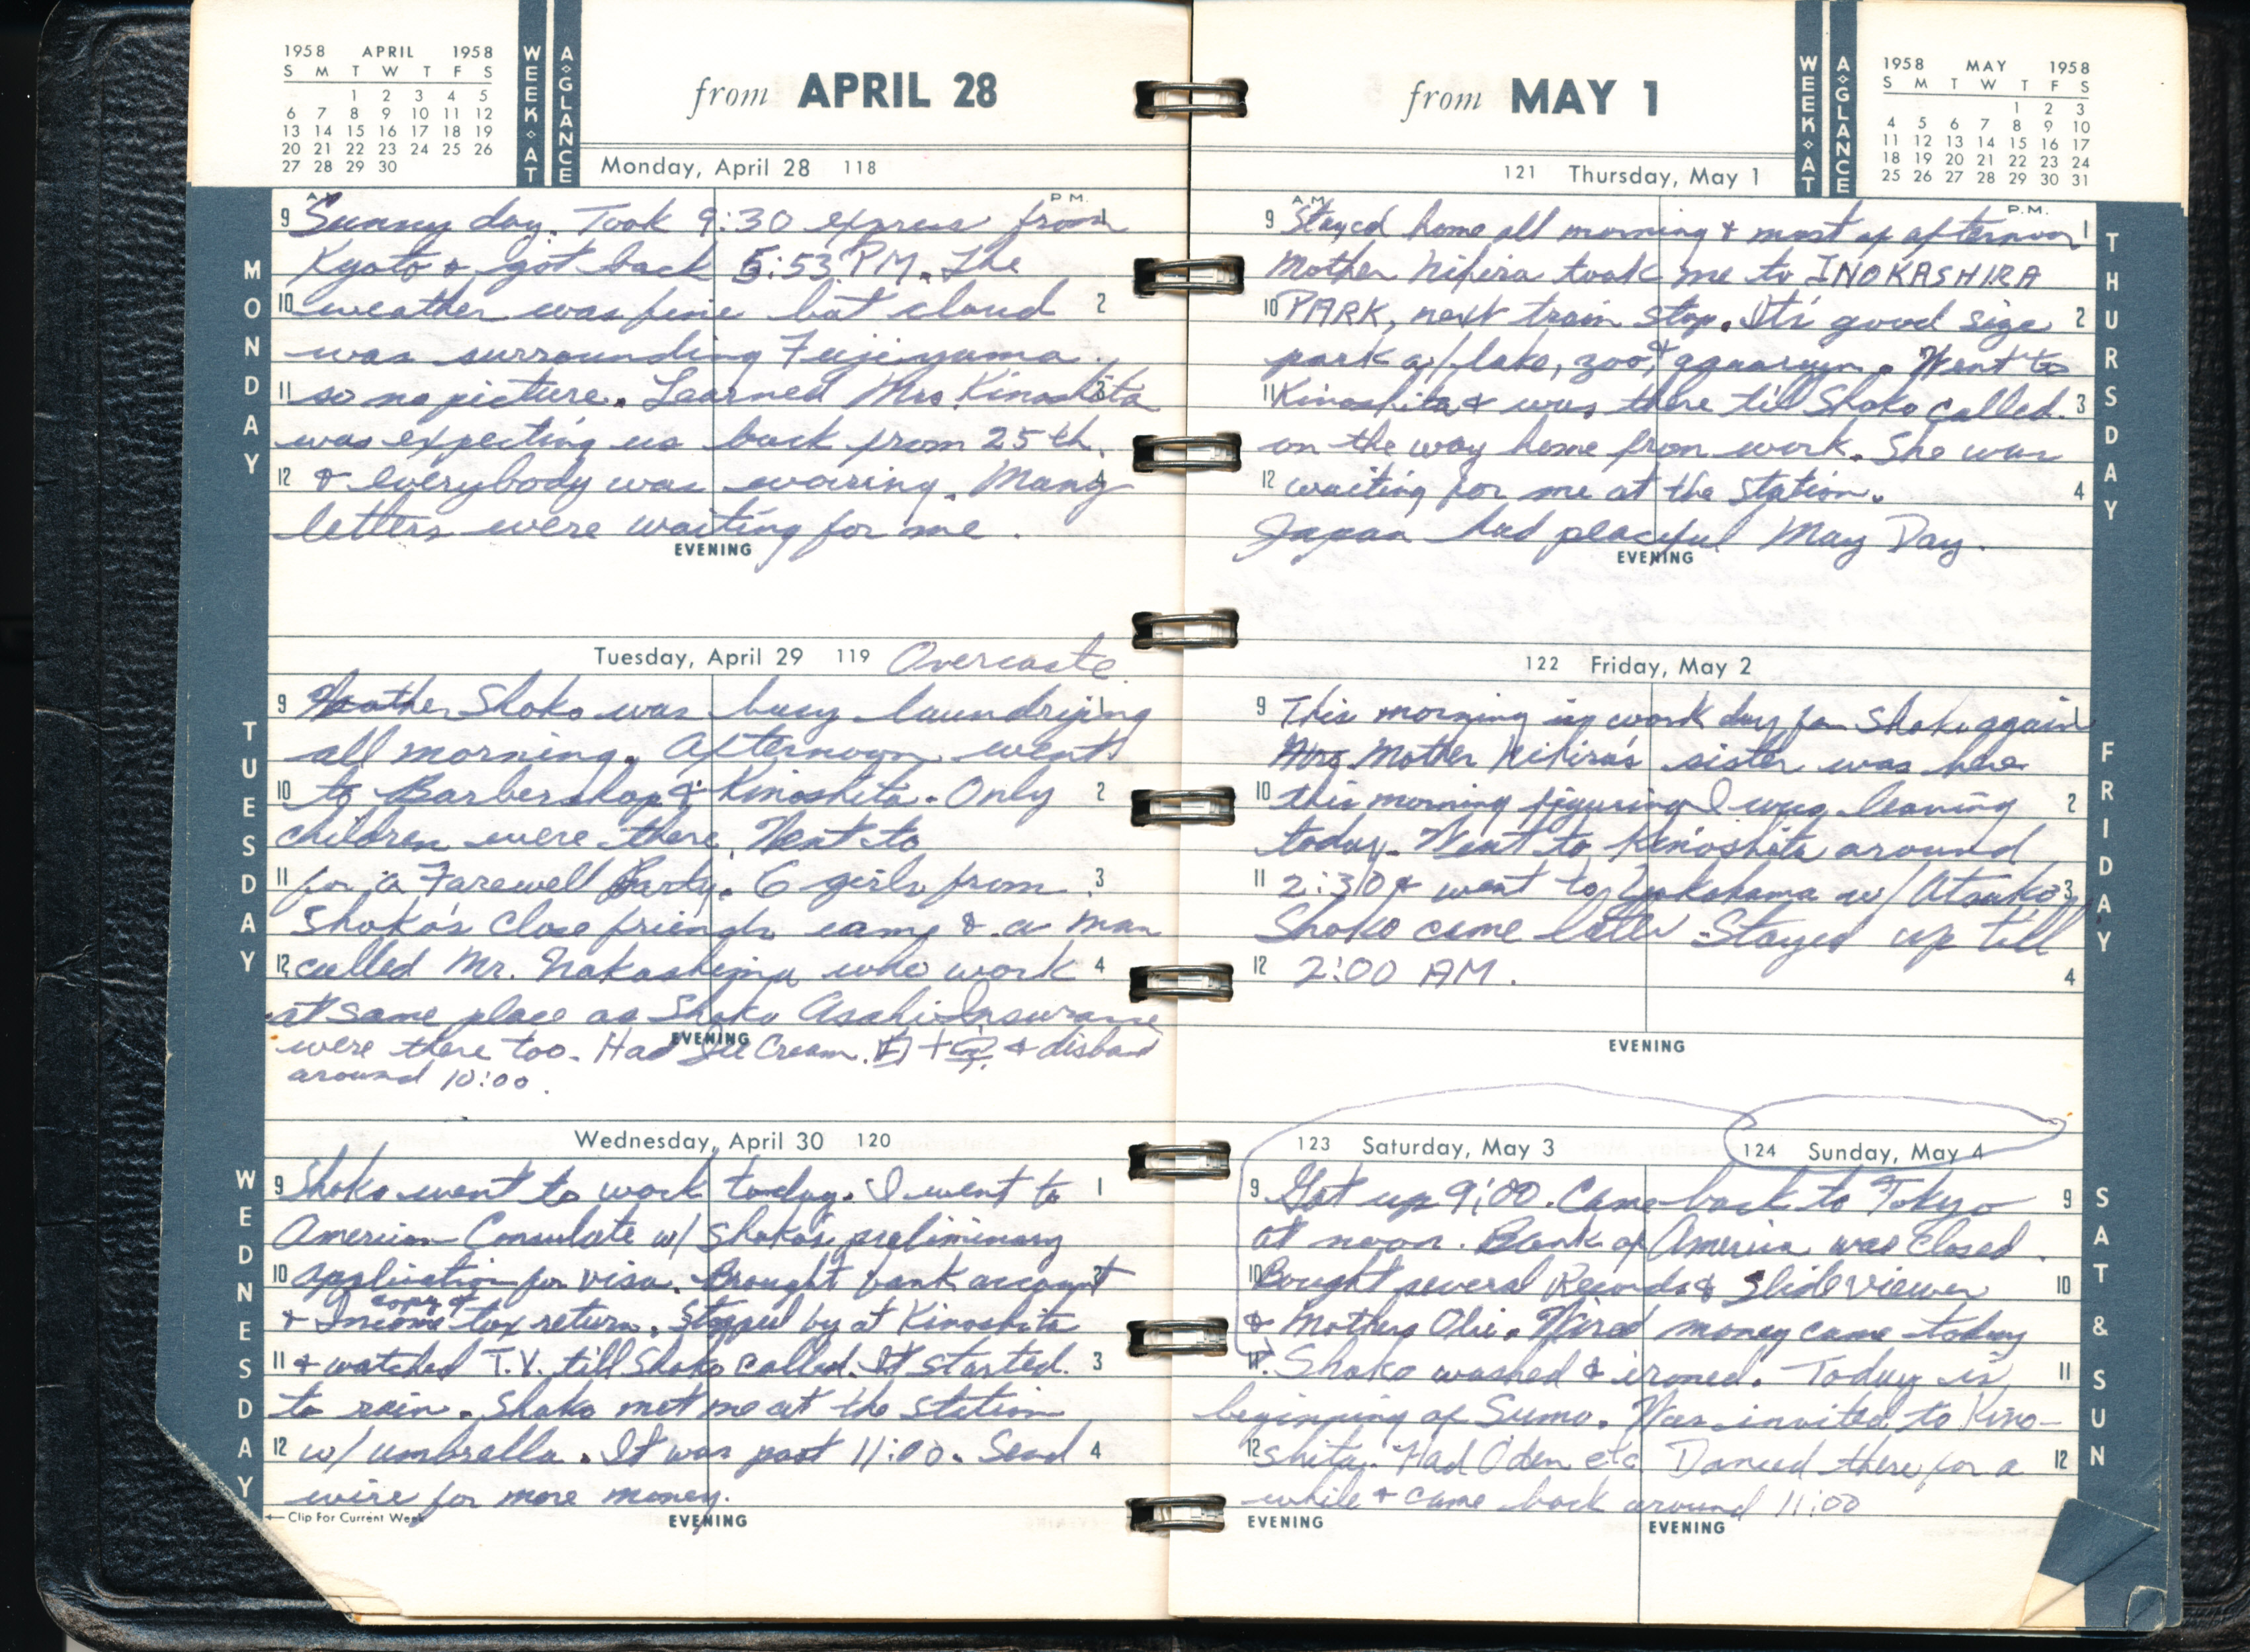 1958 APRIL 1958
S M T W T F S
1 2 3 4 5
6 7 8 9 10 11 12
13 14 15 16 17 18 19
20 21 22 23 24 25 26
27 28 29 30
WEEK AT A GLANCE
from APRIL 28
Monday, April 28 118
MONDAY
A.M. P.M.
9 Sunny day. Took 9:30 express from 1
Kyoto & got back 5:53 PM. The
10 weather was fine but cloud 2
was surrounding Fujiyama.
11 so no picture. Learned Mrs. Kinoshita 3
was expecting us back from 25th.
12 & everybody was worring. Many 4
letters were waiting for me.
EVENING
Tuesday, April 29 119 Overcaste
TUESDAY
9 Shoko was busy laundrying 1
all morning. Afternoon went
10 to Barbershop & Kinoshita. Only 2
children were there. Went to
11 for a Farewell Party. 6 girls from 3
Shoko's close friends came & a man
12 called Mr. Nakashima who work 4
at same place as Shoko Asahi Insurance
were there too. Had Ice Cream. & disband
around 10:00.
EVENING
Wednesday, April 30 120
WEDNESDAY
9 Shoko went to work today. I went to 1
American Consulate w/ Shoko's preliminary
10 application for visa. Brought bank account 2
& copy of Income tax return. Stopped by at Kinoshita
11 & watched T.V. till Shoko called. It started. 3
to rain. Shoko met me at the station
12 w/ umbrella. It was past 11:00. Send 4
wire for more money.
← Clip For Current Week
EVENING
from MAY 1
WEEK AT A GLANCE
1958 MAY 1958
S M T W T F S
1 2 3
4 5 6 7 8 9 10
11 12 13 14 15 16 17
18 19 20 21 22 23 24
25 26 27 28 29 30 31
121 Thursday, May 1
THURSDAY
A.M. P.M.
9 Stayed home all morning & most of afternoon 1
Mother Nihira took me to INOKASHIRA
10 PARK, next train stop. It's good size 2
park w/ lake, zoo, & aquaryum. Went to
11 Kinoshita & was there till Shoko called. 3
on the way home from work. She was
12 waiting for me at the station. 4
Japan had peaceful May Day.
EVENING
122 Friday, May 2
FRIDAY
9 This morning is work day for Shoko again 1
Mrs Mother Nihira's sister was here
10 this morning figuring I was leaving 2
today. Went to Kinoshita around
11 2:30 & went to Yokohama w/ Atsuko 3
Shoko came later. Stayed up till
12 2:00 AM. 4
EVENING
123 Saturday, May 3 124 Sunday, May 4
SAT & SUN
9 Got up 9:00. Came back to Tokyo 9
at noon. Bank of America was closed.
10 Bought several Records & Slide viewer 10
& Mothers Obi. Wired money came today
11 Shoko washed & ironed. Today is 11
beginning of Sumo. Was invited to Kino-
12 shita. Had Oden etc. Danced there for a 12
while & came back around 11:00
EVENING EVENING